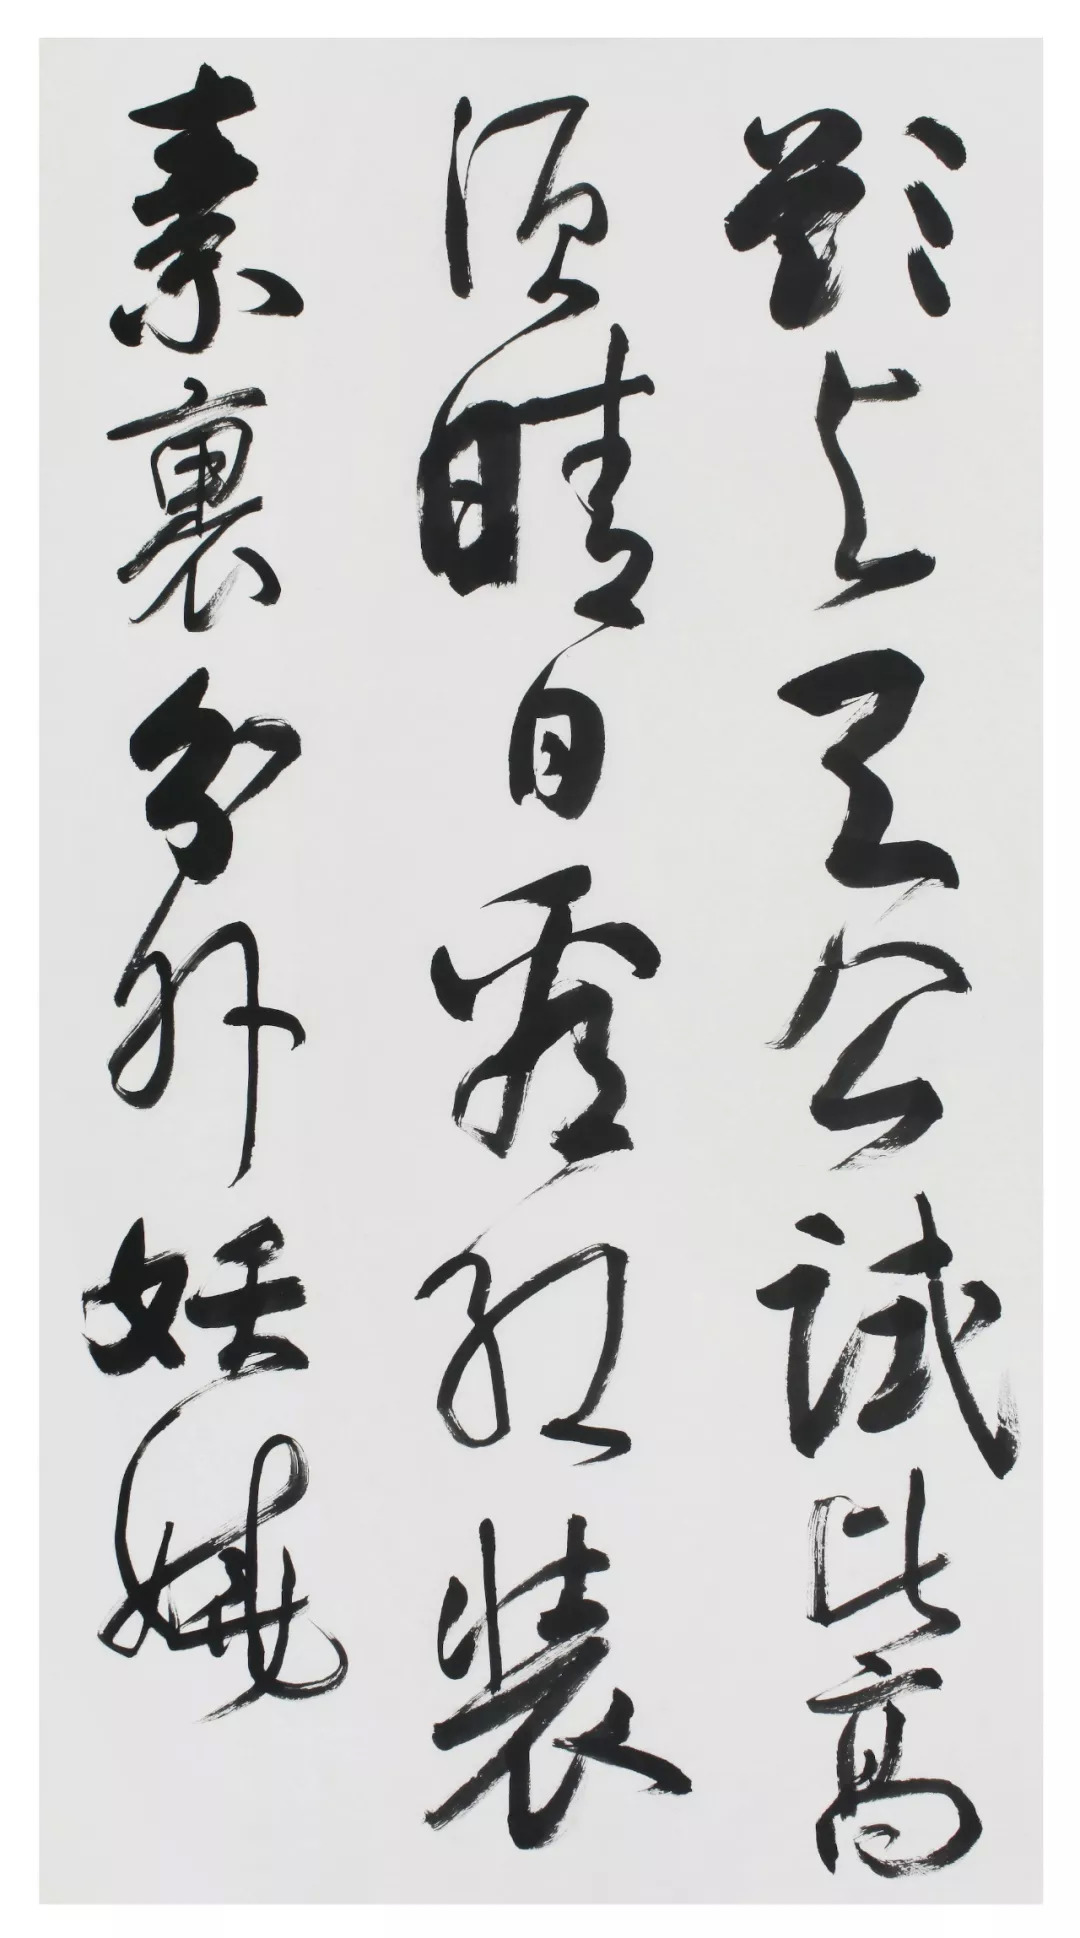 欲与天公試比高
須晴日看紅裝
素裹分外妖嬈